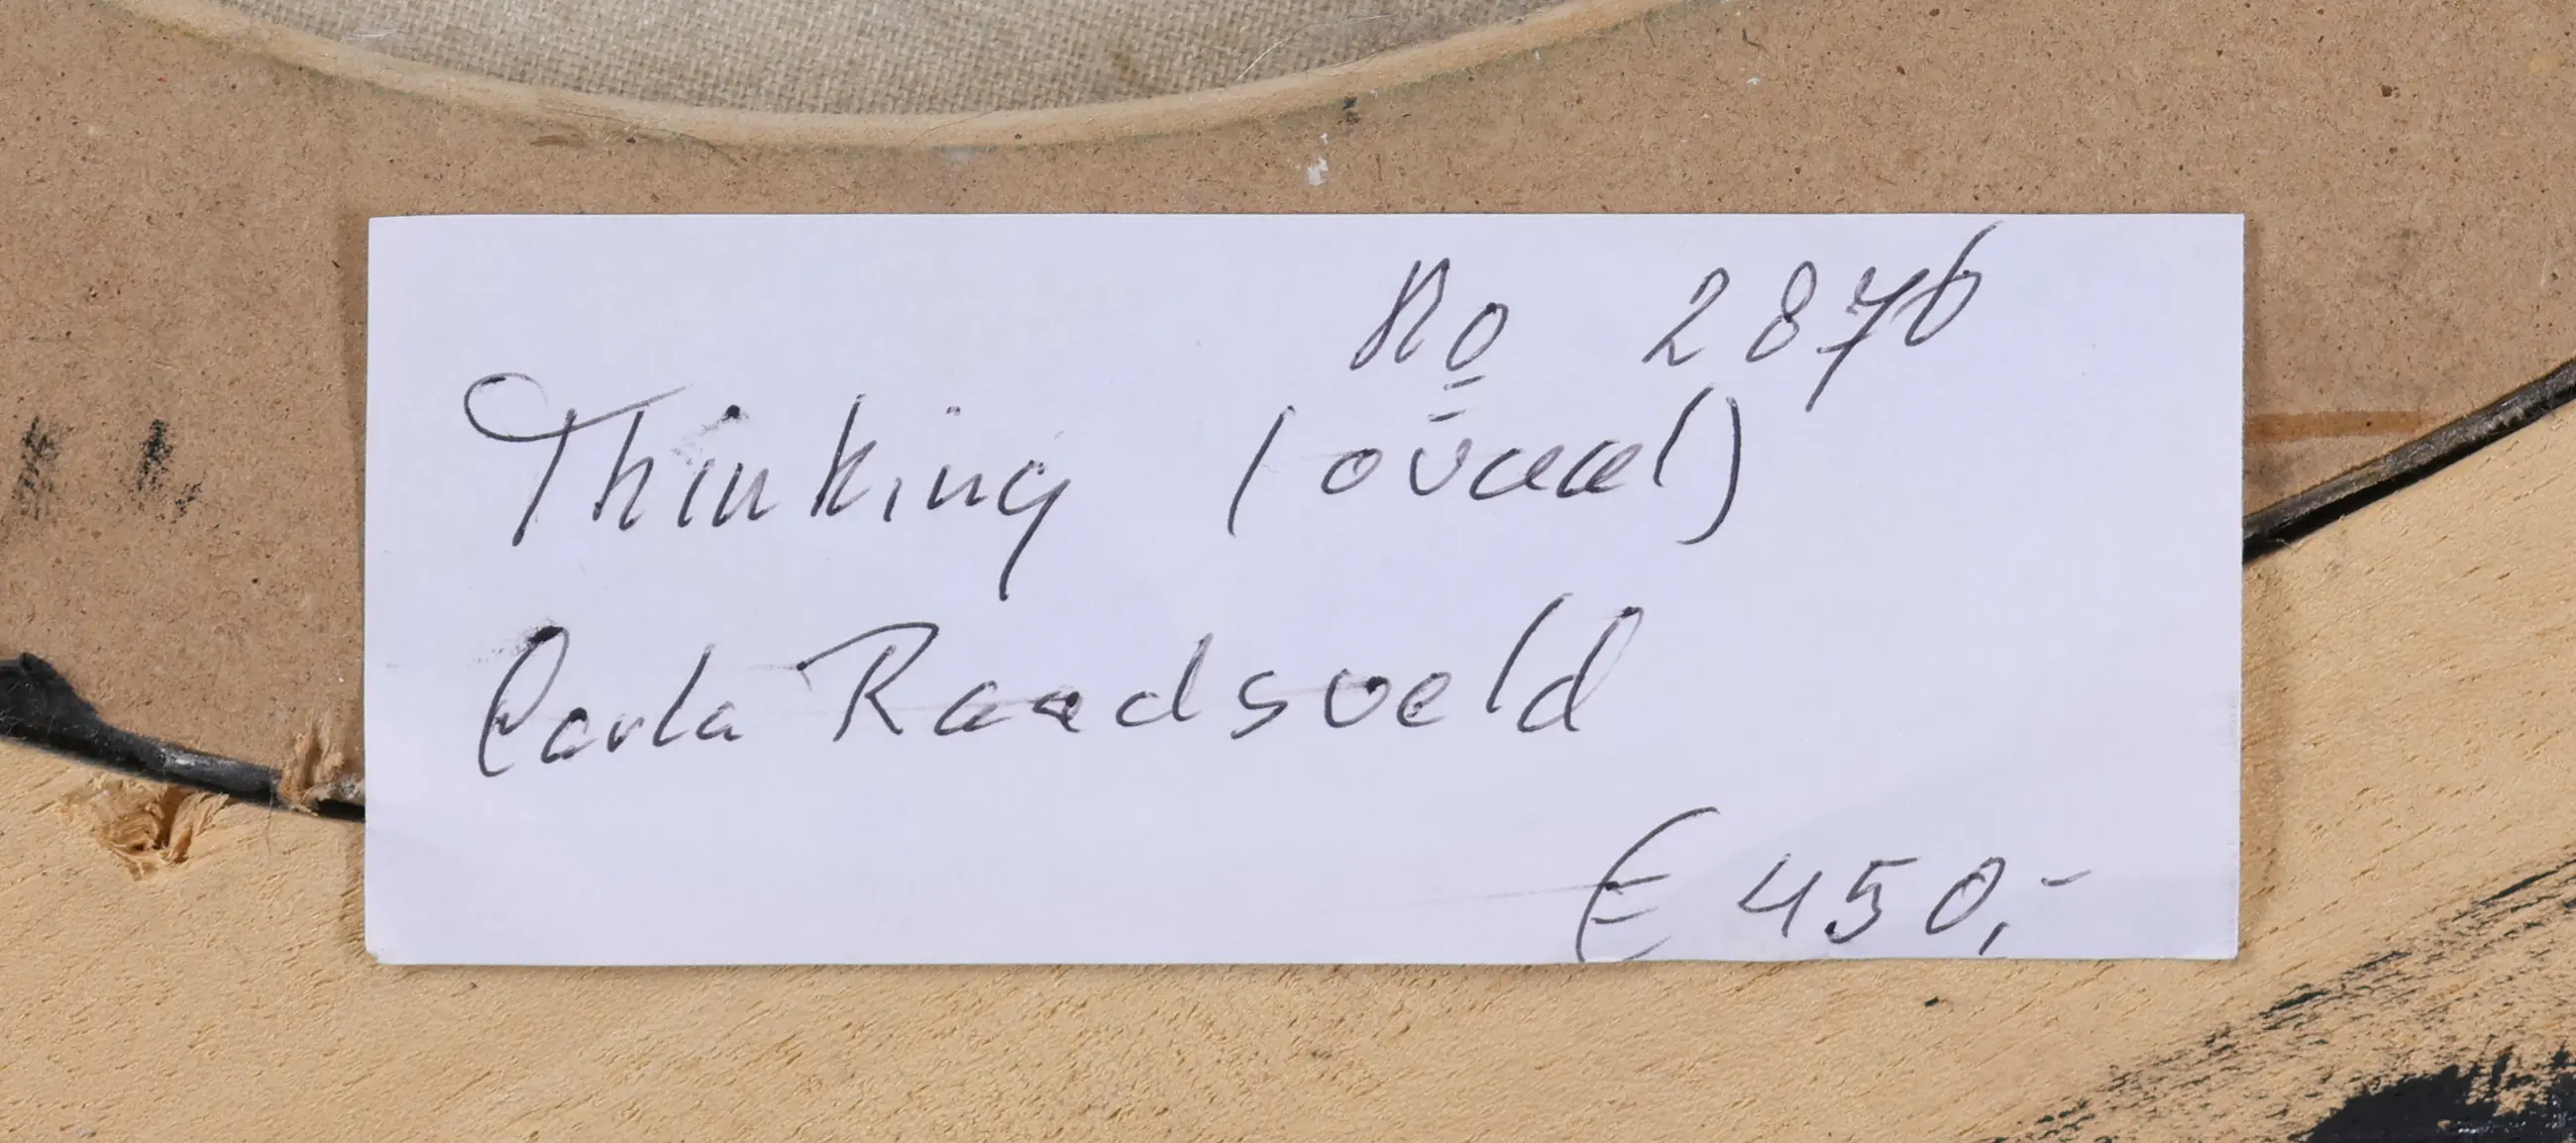 No 2876
Thinking (ovaal)
Carla Raadsveld
€ 450,-